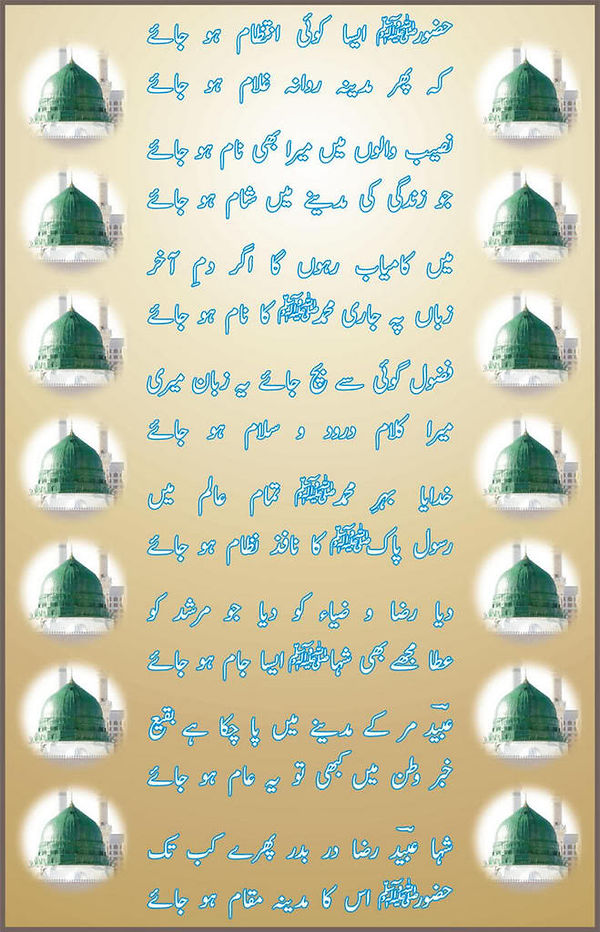 حضورﷺ ایسا کوئی انتظام ہو جائے
کہ پھر مدینہ روانہ غلام ہو جائے
نصیب والوں میں میرا بھی نام ہو جائے
جو زندگی کی مدینے میں شام ہو جائے
میں کامیاب رہوں گا اگر دمِ آخر
زباں پہ جاری محمدﷺ کا نام ہو جائے
فضول گوئی سے بچ جائے یہ زبان میری
میرا کلام درود و سلام ہو جائے
خدایا بہرِ محمدﷺ تمام عالم میں
رسول پاکﷺ کا نافذ نظام ہو جائے
دیا رضا و ضیاء کو دیا جو مرشد کو
عطا مجھے بھی شہاﷺ ایسا جام ہو جائے
عبیدؔ مر کے مدینے میں پا چکا ہے بقیع
خبر وطن میں کبھی تو یہ عام ہو جائے
شہا عبیدؔ رضا در بدر پھرے کب تک
حضورﷺ اس کا مدینہ مقام ہو جائے